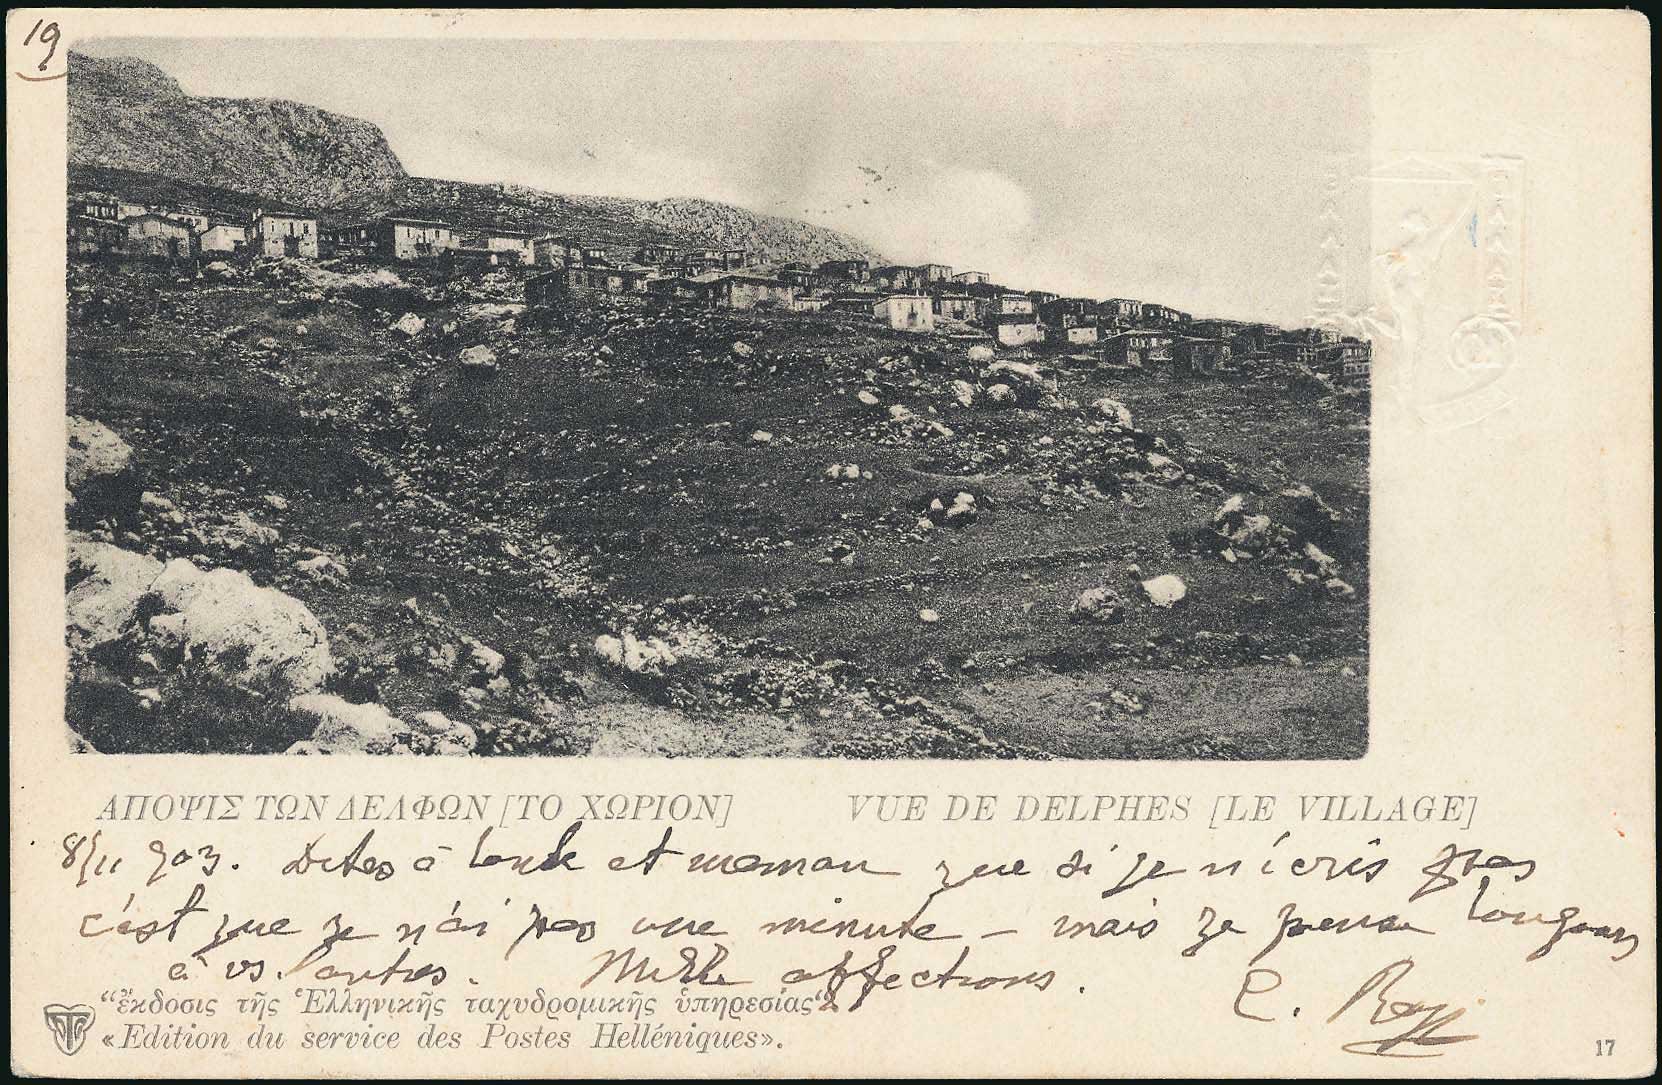 19
ΑΠΟΨΙΣ ΤΩΝ ΔΕΛΦΩΝ [ΤΟ ΧΩΡΙΟΝ]
VUE DE DELPHES [LE VILLAGE]
8/11 903. Dites à et maman que si je n'écris pas
c'est que je n'ai pas une minute – mais je pense toujours
à vs autres. Mille affections.
“ἔκδοσις τῆς Ἑλληνικῆς ταχυδρομικῆς ὑπηρεσίας“
«Edition du service des Postes Helléniques».
17